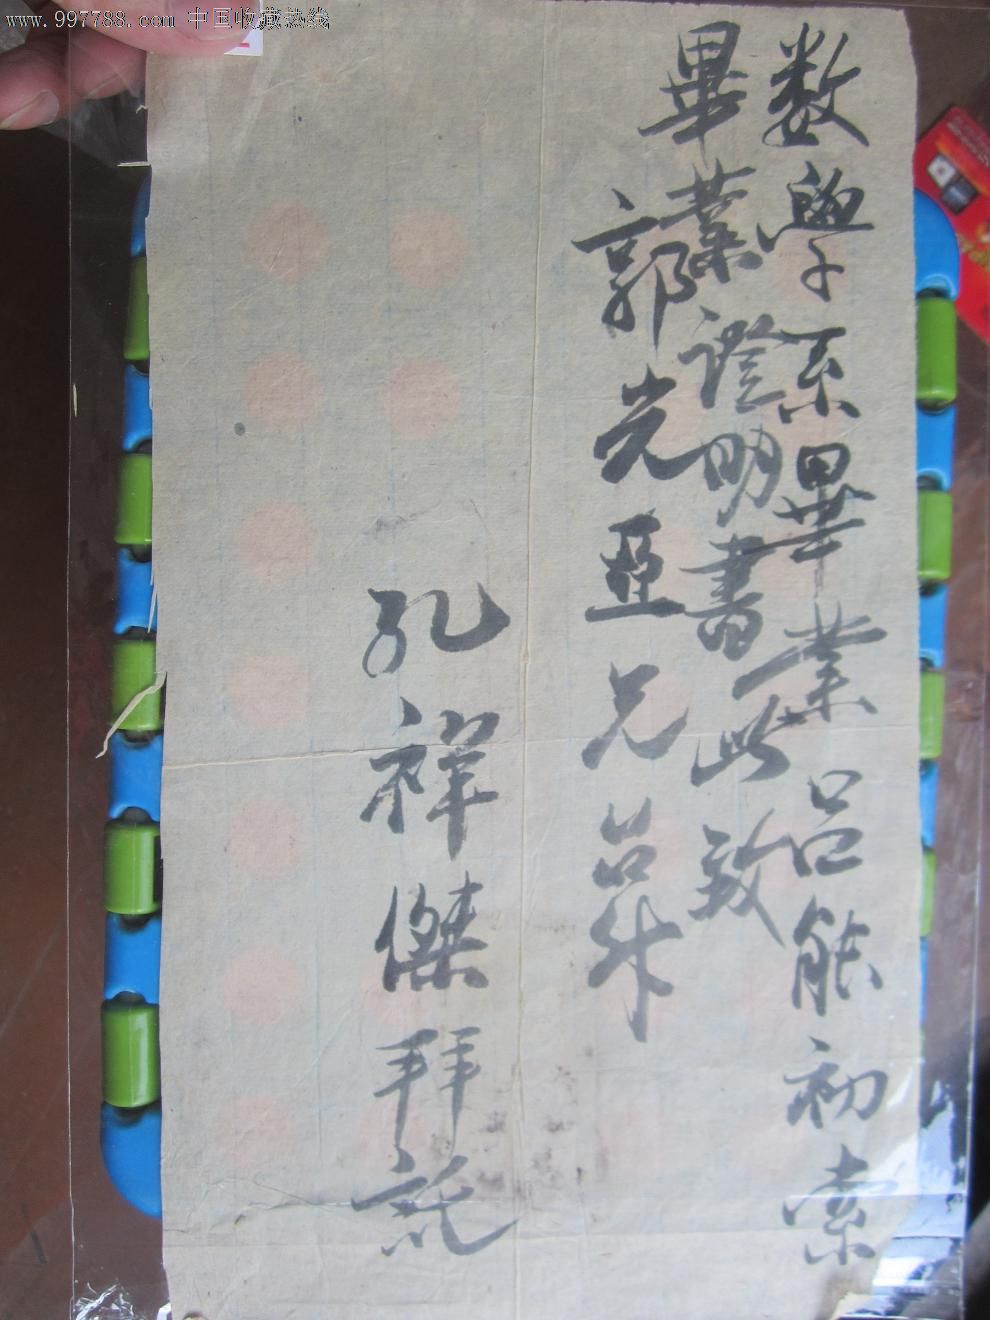 www.997788.com 中国收藏热线
数學系畢業呂能初索
畢業證明書此致
郭光亚兄台升
孔祥傑拜託